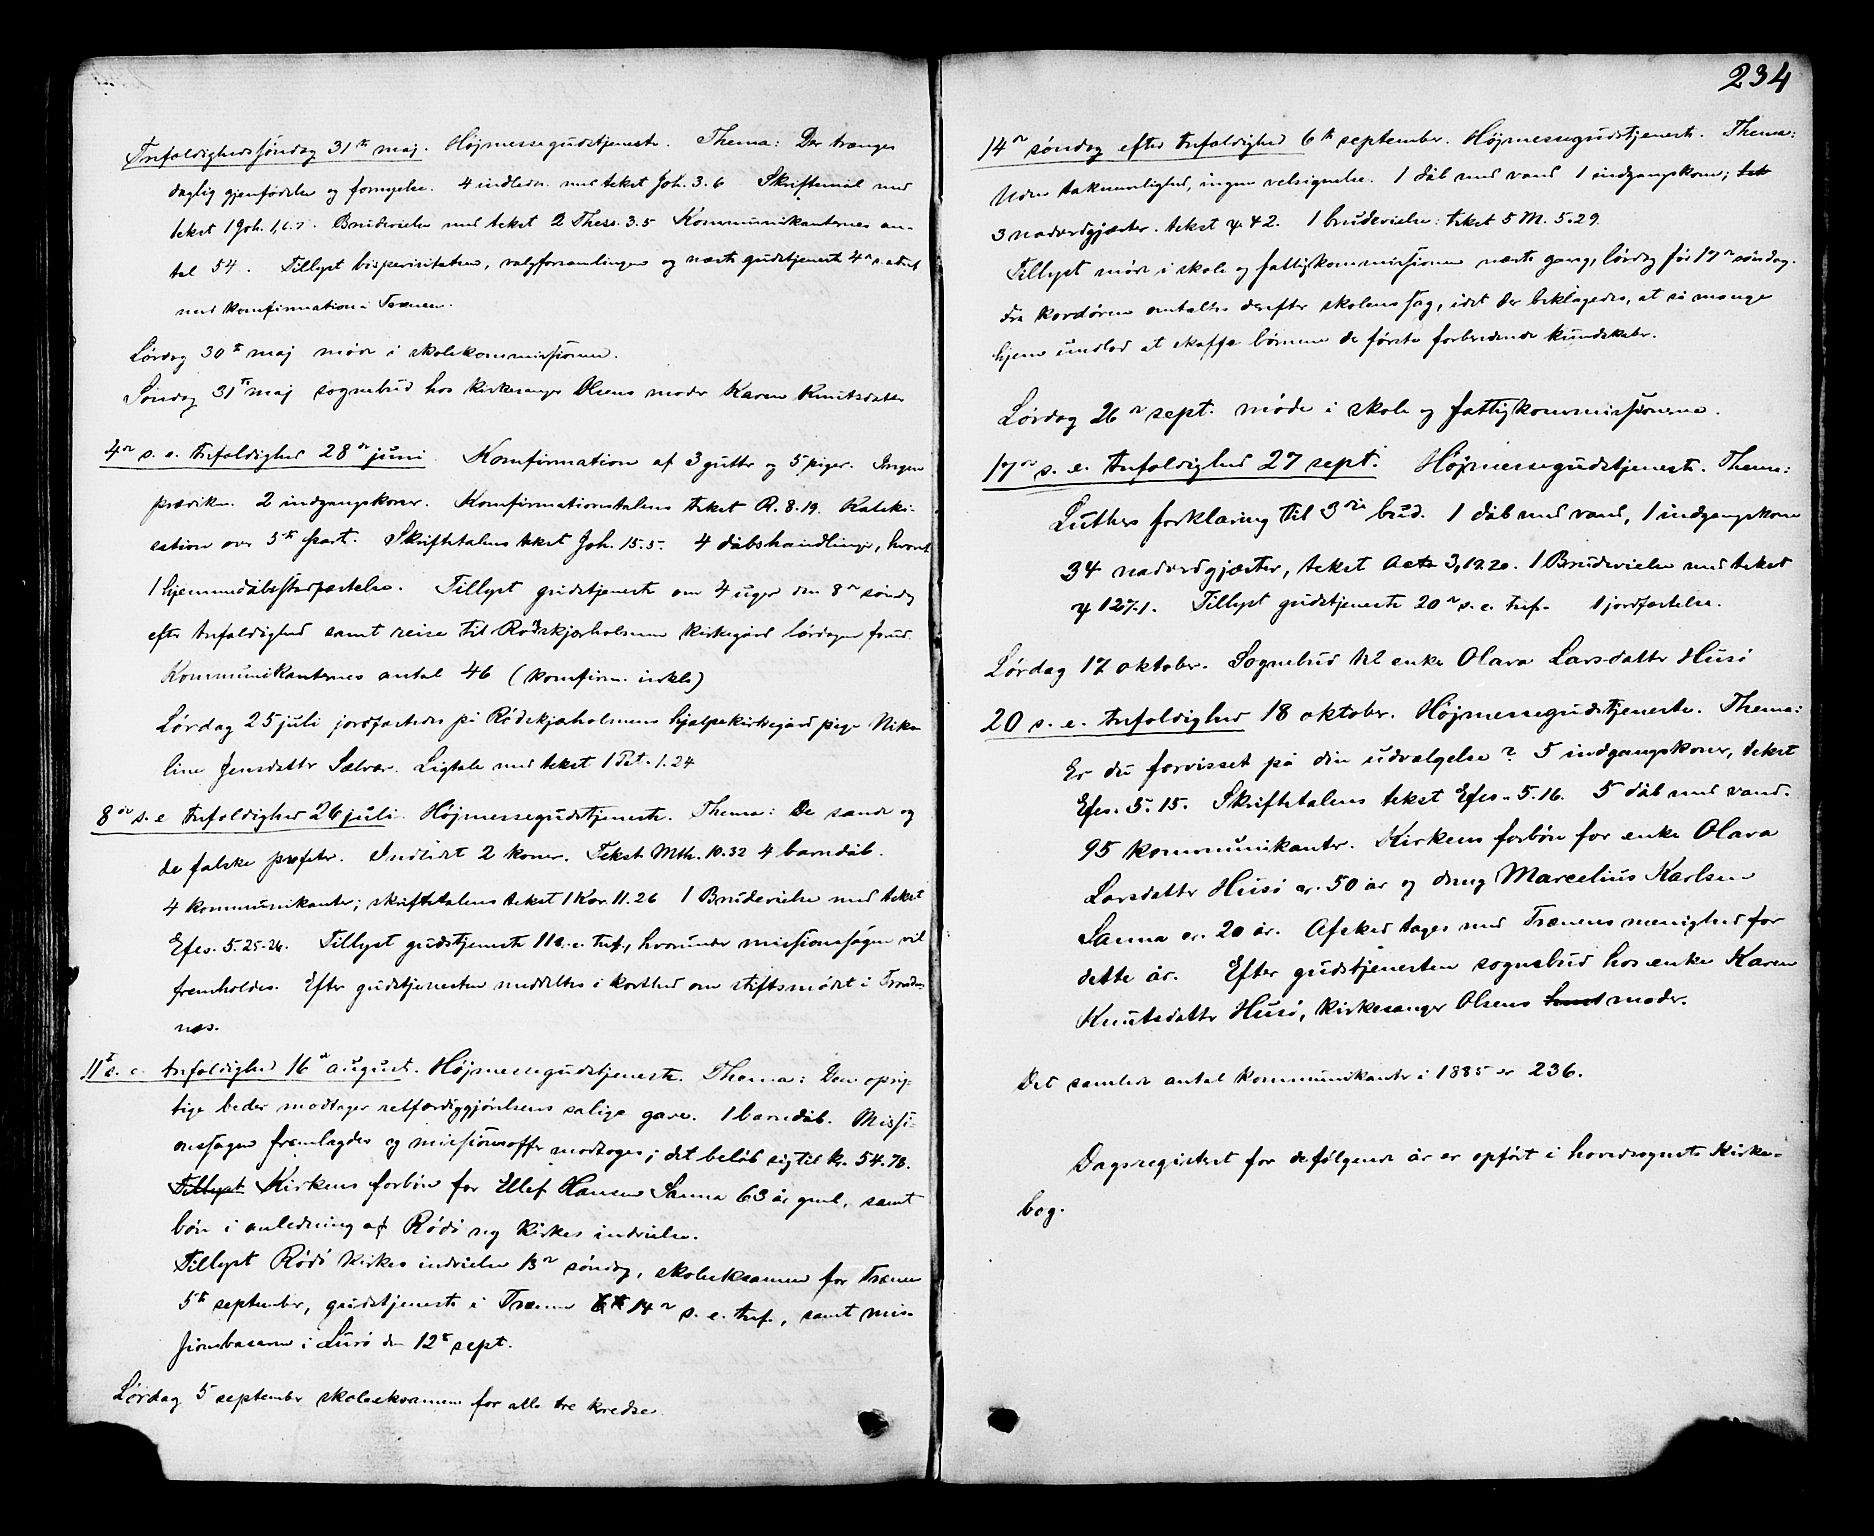 Trefoldighedssøndag 31te maj. Højmessegudstjeneste. Thema: Der trænges
daglig gjenfødelse og fornyelse. 4 indleder. med tekst Joh. 3.6 Skriftemål med
tekst 1 Joh. 1, 6.7. Brudevielse med tekst 2 Thess. 3.5 Kommunikanternes an-
tal 54. Tillyst bispevisitatsen, valgforsamlingen og næste gudstjeneste 4de s. e. tref.
med konfirmation i Trænen.
Lørdag 30te maj møde i skolekommissionen.
Søndag 31te maj sognebud hos kirkesanger Olsens moder Karen Knutsdatter
4de s. e. trefoldighed 28de juni. Konfirmation af 3 gutter og 5 piger. Ingen
prædiken. 2 indgangskoner. Konfirmationstalens tekst R. 8.19. Kateki-
sation over 5te part. Skriftetalens tekst Joh. 15.5. 4 dåbshandlinger, hvoraf
1 hjemmedåbsstadfæstelse. Tillyst gudstjeneste om 4 uger den 8de søndag
efter trefoldighed samt reise til Rødskjærholmen kirkegård lørdagen forud.
Kommunikanternes antal 46 (konfirm. inkl.)
Lørdag 25 juli jordfæstedes på Rødskjærholmens hjælpekirkegård pige Nika-
line Jensdatter Selvær. Ligtale med tekst 1 Pet. 1.24
8de s. e trefoldighed 26 juli. Højmessegudstjeneste. Thema: De sande og
de falske profeter. Indledt 2 koner. Tekst Mth. 10.32 4 barnedåb.
4 kommunikanter; skriftetalens tekst 1 Kor. 11.26 1 Brudevielse med tekst
Efes. 5.25-26. Tillyst gudstjeneste 11 s. e. tref., hvorunder missionssagen vil
fremholdes. Efter gudstjenesten meddeltes i korthed om stiftsmødet i Tronde-
næs.
11te s. e. trefoldighed 16de august. Højmessegudstjeneste. Thema: Den oprig-
tige beder modtager retfærdiggjørelsens salige gave. 1 barnedåb. Missi-
onssagen fremlagdes og missionsoffer modtoges; det beløb sig til kr. 54.78.
Tillyst Kirkens forbøn for Ellef Hansen Sanna 63 år gml., samt
bøn i anledning af Rødø ny kirkes indvielse.
Tillyst Rødø kirkes indvielse 13de søndag, skoleeksamen for Trænen
5te september, gudstjeneste i Trænen 14de s. e. tref., samt mis-
sionsbasaren i Lurø den 12te sept.
Lørdag 5 september skoleeksamen for alle tre kredse.
234
14de søndag efter trefoldighed 6te september. Højmessegudstjeneste. Thema:
Uden taknemlighed, ingen velsignelse. 1 dåb med vand 1 indgangskone;
3 nadverdgjæster. tekst ψ 42. 1 brudevielse: tekst 5 M. 5.29
Tillyst møde i skole og fattigkommissionen næste gang, lørdag før 17de søndag.
Fra kordøren omtaltes derefter skolens sag, idet der beklagedes, at så mange
hjem undlod at skaffe børnene de første forberedende kundskaber.
Lørdag 26de sept. møde i skole og fattigkommissionerne.
17de s. e. trefoldighed 27 sept. Højmessegudstjeneste. Thema:
Luthers forklaring til 3die bud. 1 dåb med vand, 1 indgangskone
34 nadverdgjæster, tekst Acta 3,19.20. 1 Brudevielse med tekst
ψ 127.1. Tillyst gudstjeneste 20de s. e. tref. 1 jordfæstelse.
Lørdag 17 oktober. Sognebud til enke Olava Larsdatter Husø
20 s. e. trefoldighed 18 oktober. Højmessegudstjeneste. Thema:
Er du forvisset på din udvælgelse? 5 indgangskoner, tekst
Efes. 5. 15. Skriftetalens tekst Efes. 5.16. 5 dåb med vand.
95 kommunikanter. Kirkens forbøn for enke Olava
Larsdatter Husø er. 50 år og dreng Marcelius Karlsen
Sanna er. 20 år. Afsked tages med Trænens menighed for
dette år. Efter gudstjenesten sognebud hos enke Karen
Knutsdatter Husø, kirkesanger Olsens moder.
Det samlede antal kommunikanter i 1885 er 236.
Dagsregistret for de følgende år er opført i hovedsognets kirke-
bog.